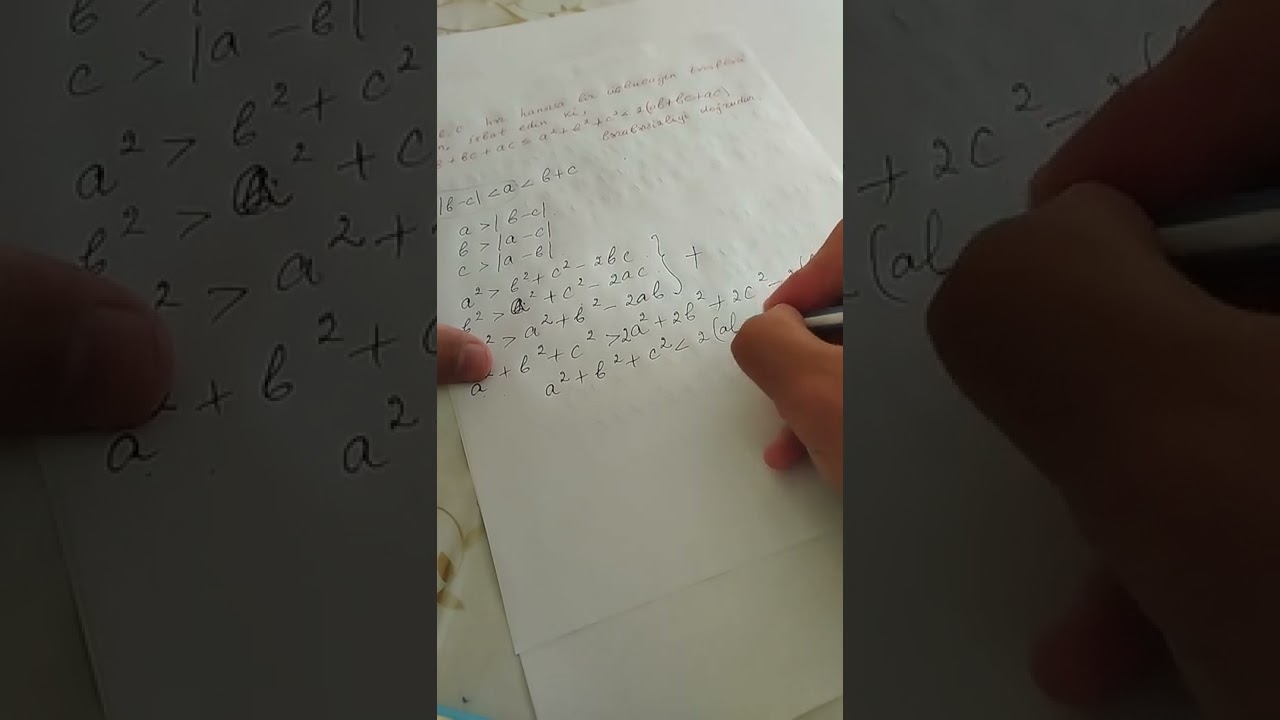 b, c hər hansısa bir üçbucağın tərəfləri
isbat edin ki,
+ bc + ac ≤ a² + b² + c² < 2(ab + bc + ac)
bərabərsizliyi doğrudur.
|b-c| < a < b+c
a > |b-c|
b > |a-c|
c > |a-b|
a² > b² + c² - 2bc
b² > a² + c² - 2ac
² > a² + b² - 2ab
a² + b² + c² > 2a² + 2b² + 2c² - 2(
a² + b² + c² < 2(ab